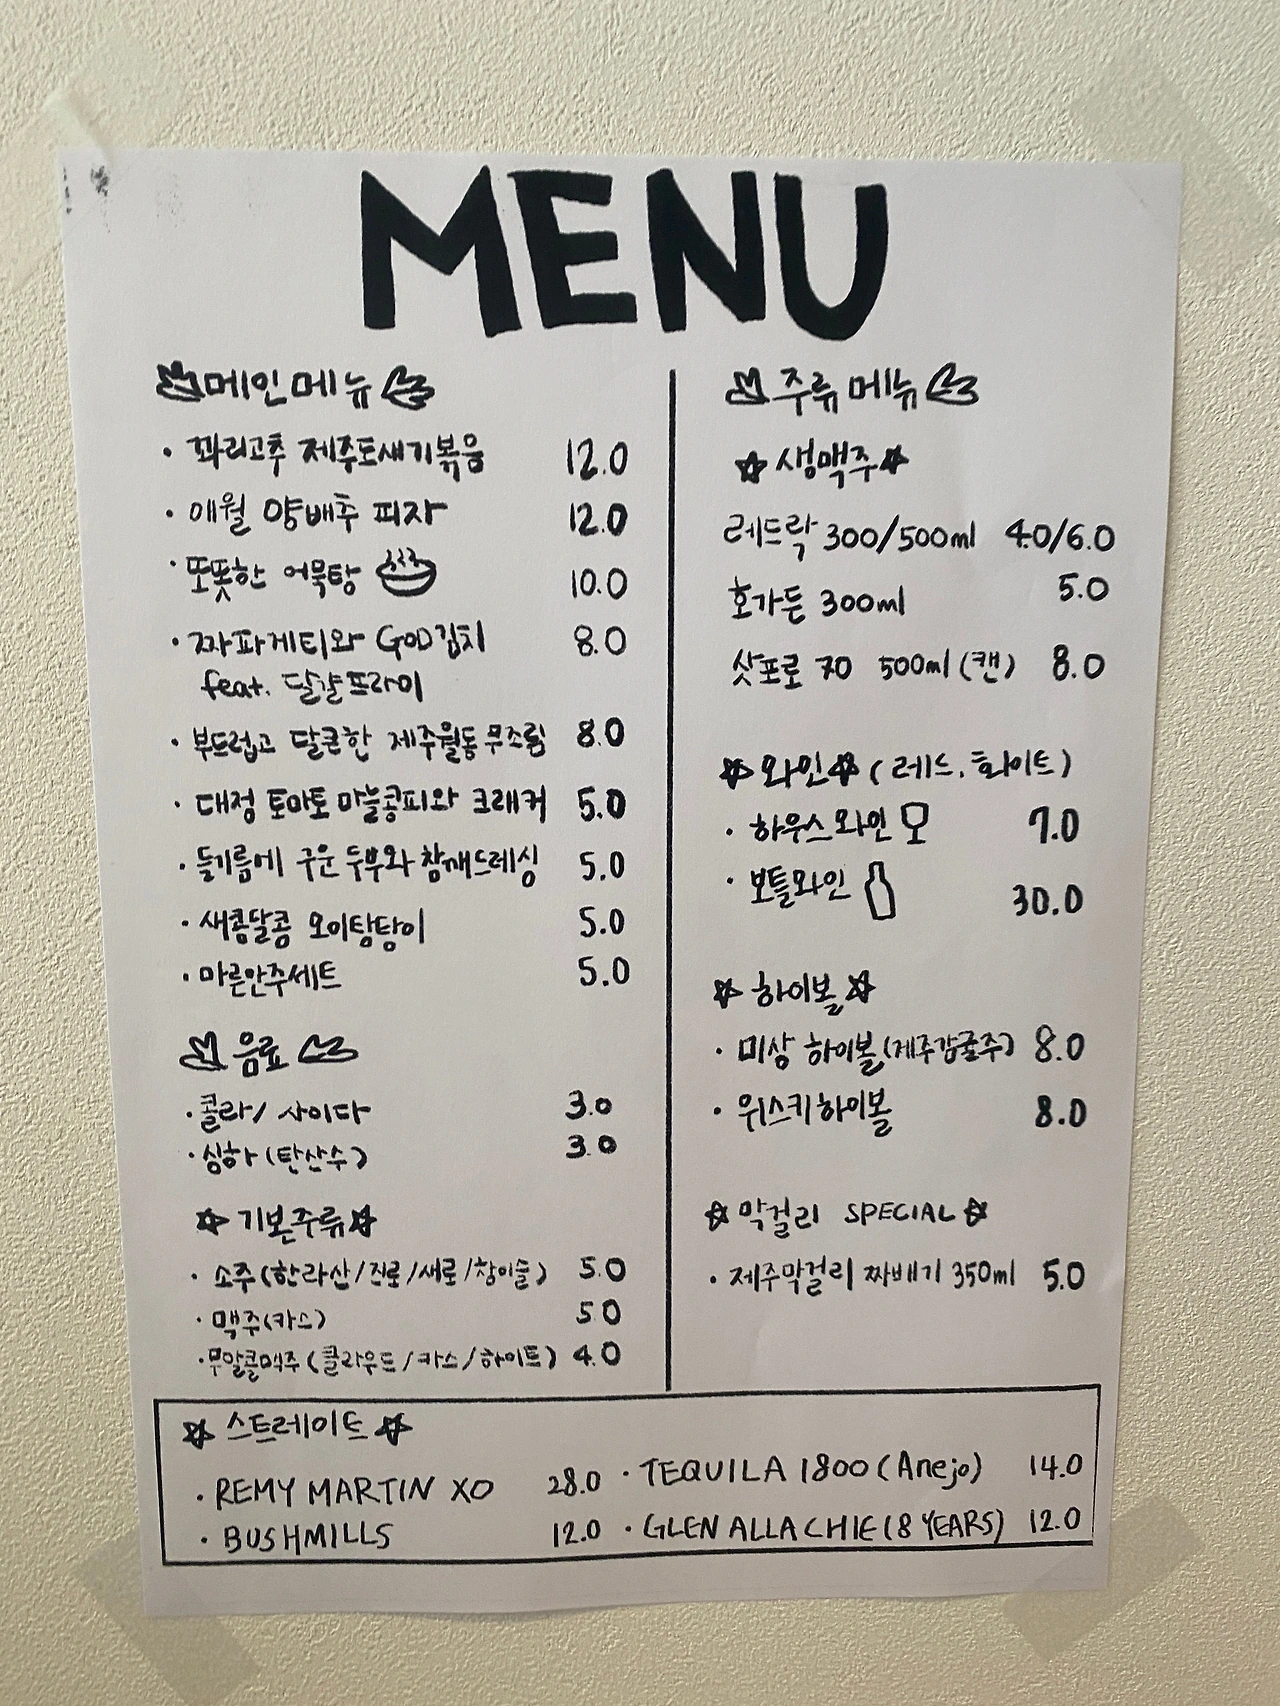 MENU
메인메뉴
· 꽈리고추 제주도새기볶음 12.0
· 애월 양배추 피자 12.0
· 또똣한 어묵탕 10.0
· 짜파게티와 GOD김치 8.0
feat. 달걀프라이
· 부드럽고 달큰한 제주월동무조림 8.0
· 대정 토마토 마늘콩피와 크래커 5.0
· 들기름에 구운 두부와 참깨드레싱 5.0
· 새콤달콤 오이탕탕이 5.0
· 마른안주세트 5.0
음료
· 콜라/ 사이다 3.0
· 싱하 (탄산수) 3.0
☆ 기본주류 ☆
· 소주 (한라산/진로/새로/참이슬) 5.0
· 맥주(카스) 5.0
· 무알콜맥주 (클라우드/카스/하이트) 4.0
주류메뉴
☆ 생맥주 ☆
레드락 300/500ml 4.0/6.0
호가든 300ml 5.0
삿포로 70 500ml (캔) 8.0
☆ 와인 ☆ (레드, 화이트)
· 하우스와인 7.0
· 보틀와인 30.0
☆ 하이볼 ☆
· 미상 하이볼 (제주감귤주) 8.0
· 위스키하이볼 8.0
☆ 막걸리 SPECIAL ☆
· 제주막걸리 짜배기 350ml 5.0
☆ 스트레이트 ☆
· REMY MARTIN XO 28.0 · TEQUILA 1800 (Anejo) 14.0
· BUSHMILLS 12.0 · GLEN ALLACHIE (8 YEARS) 12.0